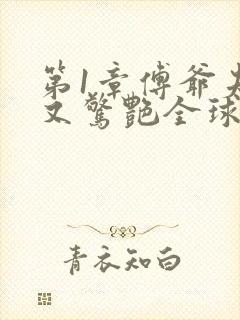 第1章傅爷夫
又驚艷全球
青衣知白